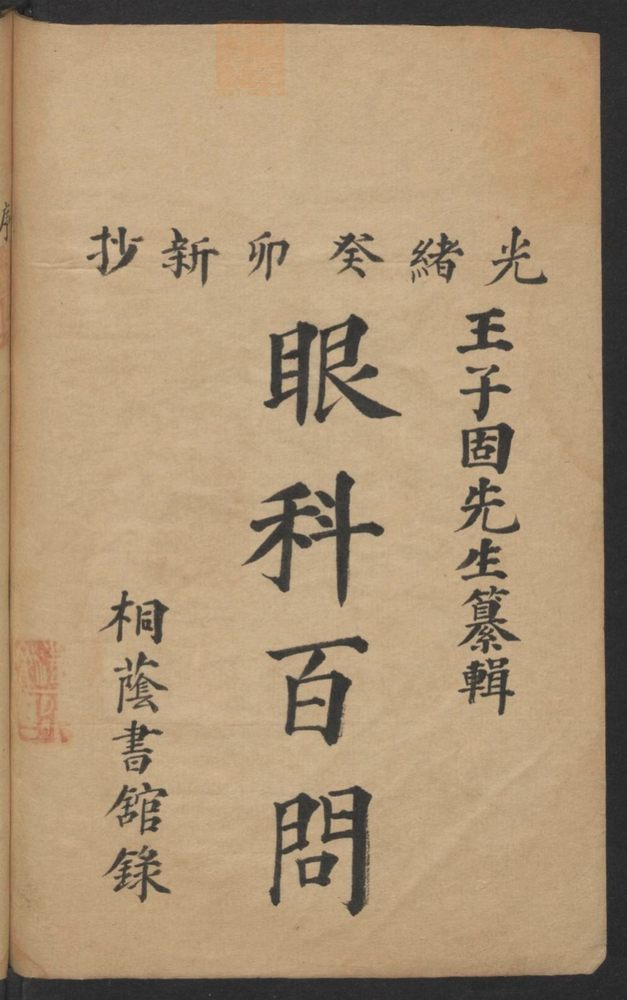 光緒癸卯新抄
王子固先生纂輯
眼科百問
桐蔭書舘錄